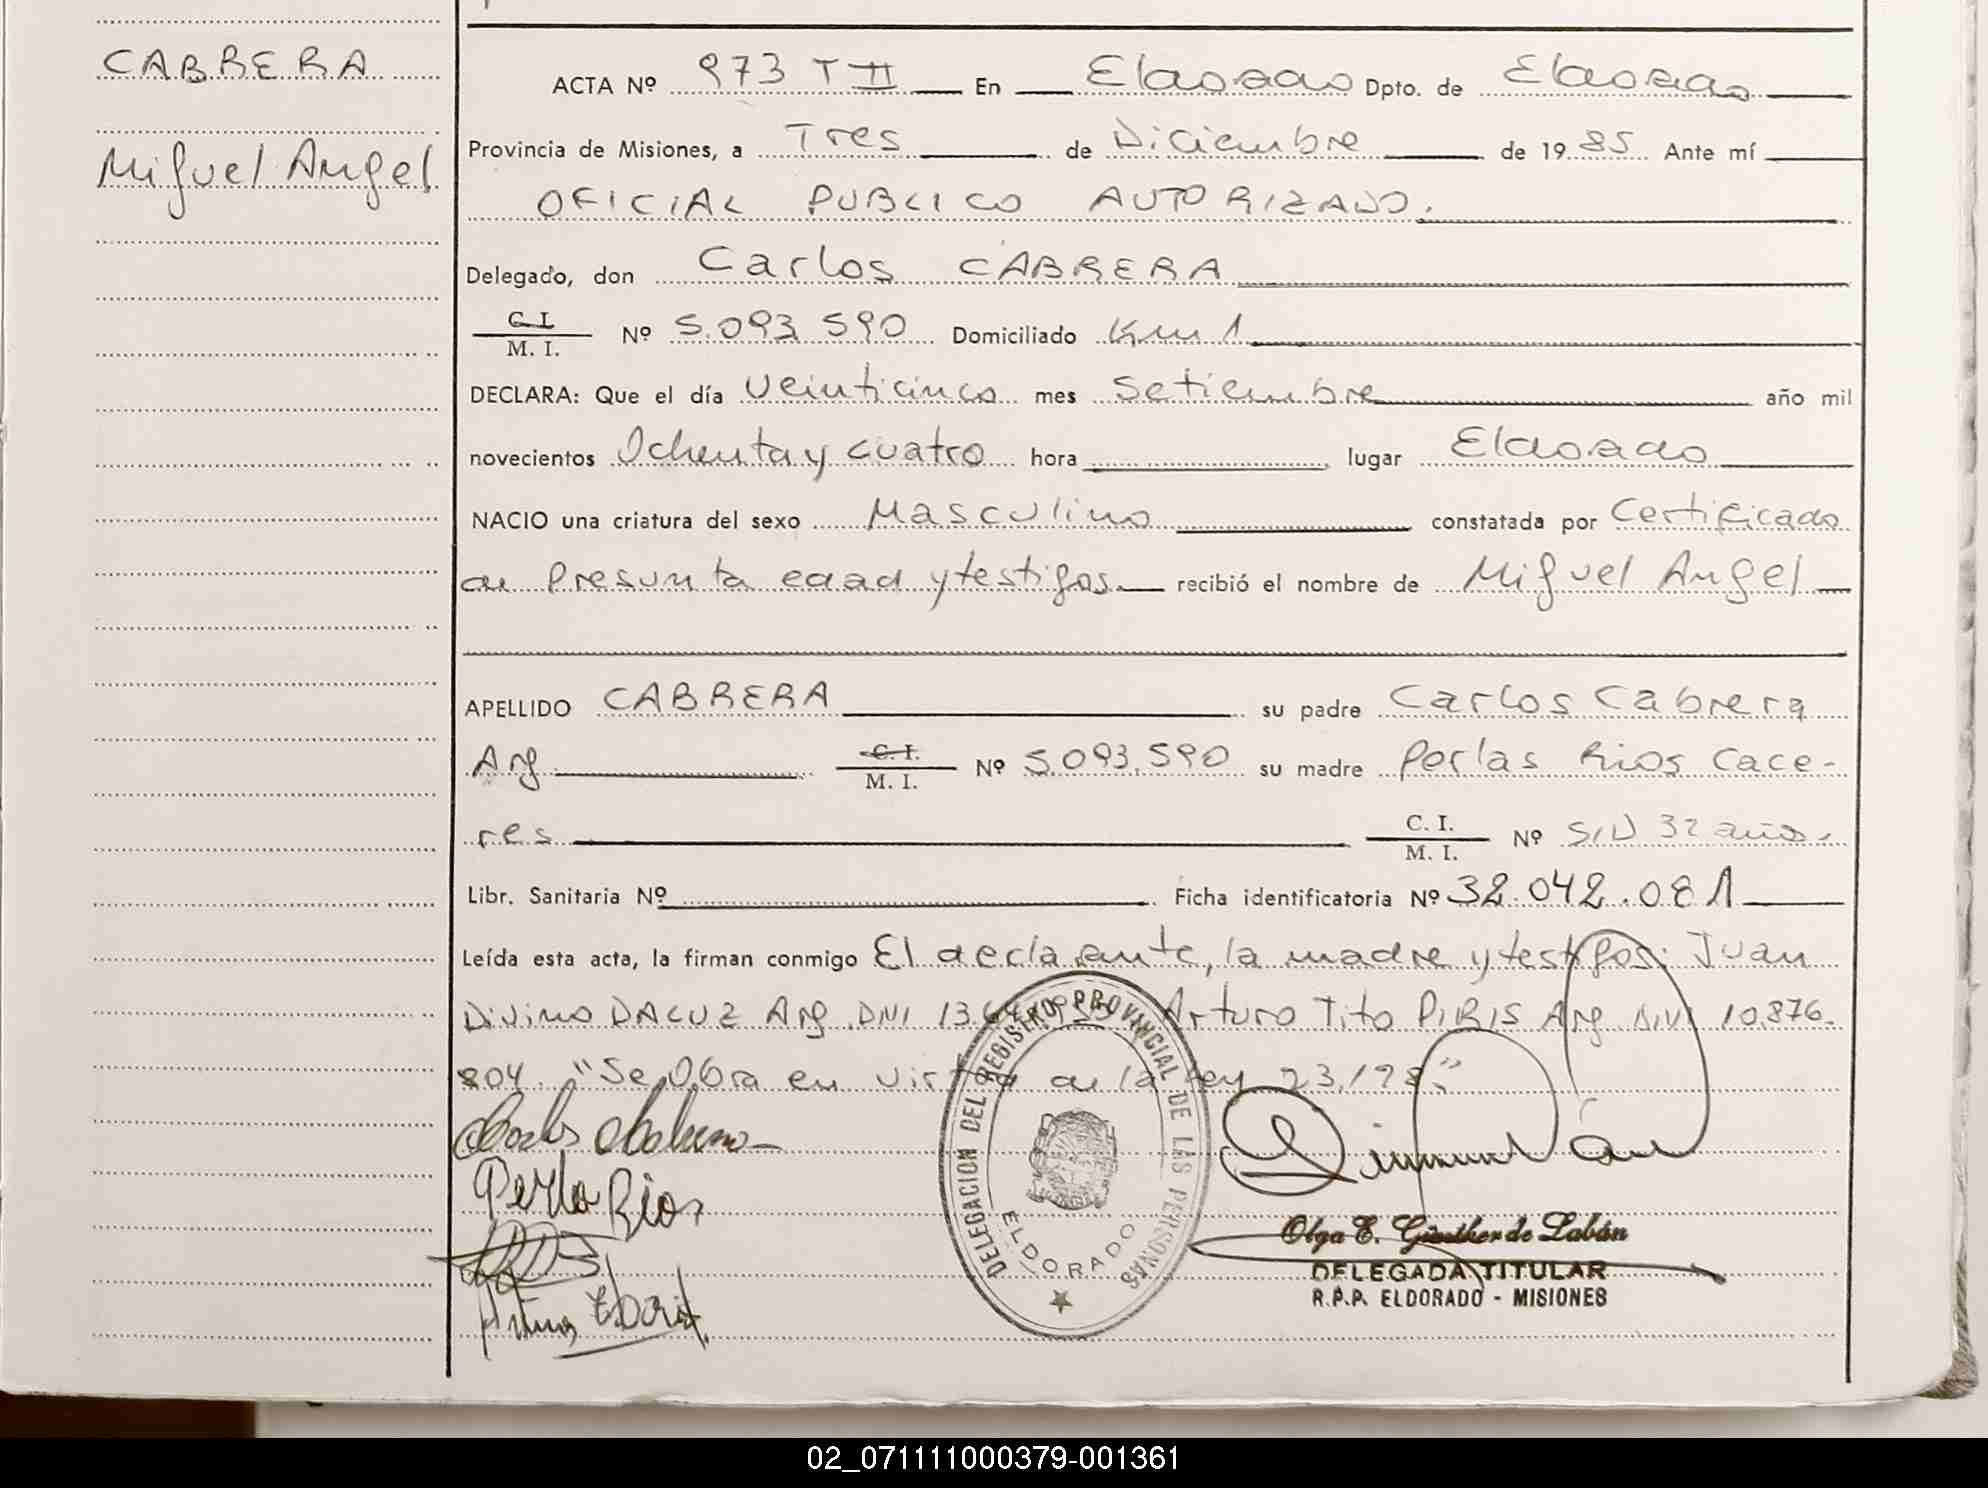 CABRERA
Miguel Angel
ACTA Nº 973 T II En Eldorado Dpto. de Eldorado
Provincia de Misiones, a Tres de Diciembre de 1985 Ante mí
OFICIAL PUBLICO AUTORIZADO.
Delegado, don Carlos CABRERA
C. I.
M. I. Nº 5.093.590 Domiciliado Km 1
DECLARA: Que el día veinticinco mes Setiembre año mil
novecientos Ochenta y cuatro hora lugar Eldorado
NACIO una criatura del sexo Masculino constatada por Certificado
de Presunta edad y testigos recibió el nombre de Miguel Angel
APELLIDO CABRERA su padre Carlos Cabrera
Arg C. I.
M. I. Nº 5.093.590 su madre Perlas Rios Cace-
res C. I.
M. I. Nº S/D 32 años.
Libr. Sanitaria Nº Ficha identificatoria Nº 32.042.081
Leída esta acta, la firman conmigo El declarante, la madre y testigos: Juan
Divino DACUZ Arg. DNI Arturo Tito PIRIS Arg. DNI 10.876.
804. "Se Obra en virtud de la Ley 23.198"
Perla Rios
DELEGACION DEL REGISTRO PROVINCIAL DE LAS PERSONAS
ELDORADO
Olga E. Günther de Labán
DELEGADA TITULAR
R.P.P. ELDORADO - MISIONES
02_071111000379-001361